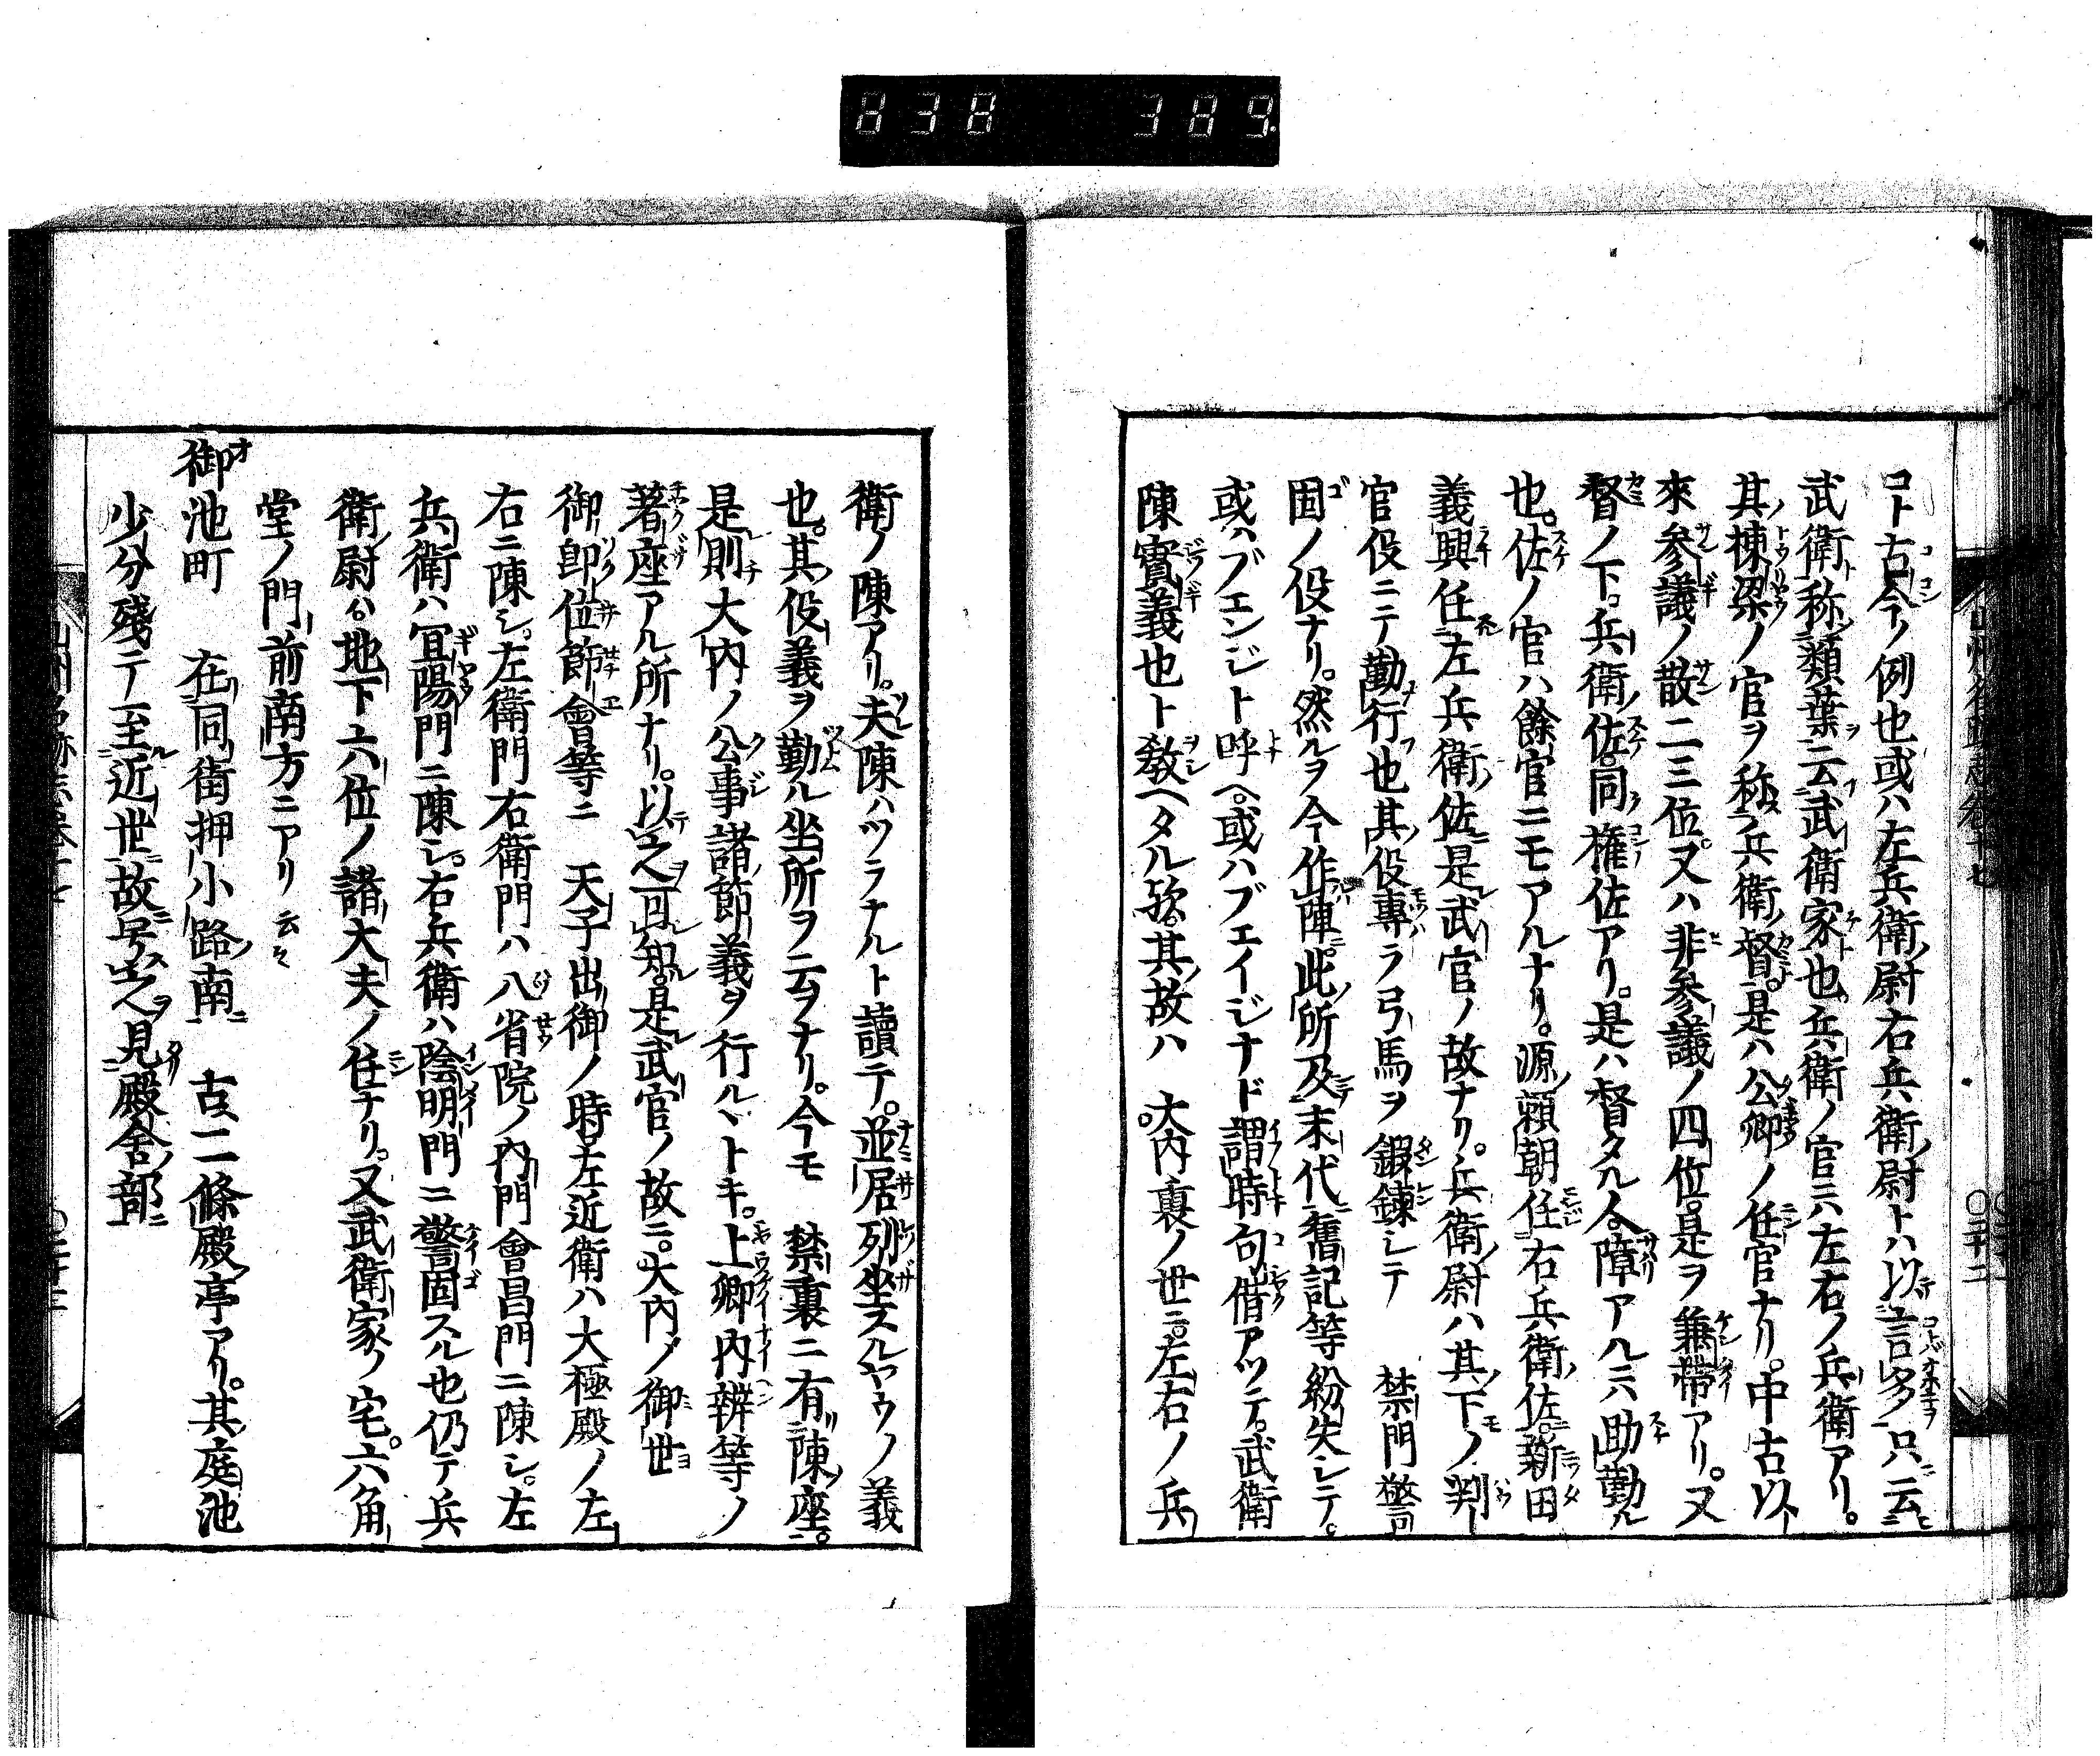 838 389
コト古今ノ例也或ハ左兵衛尉右兵衛尉トハ以言多只云
武衛称類葉云武衛家也兵衛ノ官ニハ左右ノ兵衛アリ。
其棟梁ノ官ヲ称ス兵衛督。是ハ公卿ノ任官ナリ。中古以
來参議ノ散二三位。又ハ非参議ノ四位。是ヲ兼帯アリ。又
督ノ下。兵衛佐。同権佐アリ。是ハ督タル人。障アルニハ助勤ル
也。佐ノ官ハ餘官ニモアルナリ。源頼朝任右兵衛佐。新田
義興任左兵衛佐是武官ノ故ナリ。兵衛尉ハ其下ノ判
官役ニテ勤行也其役專ラ弓馬ヲ鍛錬シテ 禁門警
固ノ役ナリ。然ルヲ今作陣。此所及末代舊記等紛失シテ。
或ハブエンジト呼ヘ。或ハブエイジナド謂時句借アツテ。武衛
陳實義也ト教ヘタル歟。其故ハ 大内裏ノ世ニ。左右ノ兵
衛ノ陳アリ。夫陳ハツラナルト讀テ。並居列坐スルヤウノ義
也。其役義ヲ勤ル坐所ヲ云ヲナリ。今モ 禁裏ニ有陳座。
是則大内ノ公事諸節義ヲ行ルヽトキ。上卿内辨等ノ
著座アル所ナリ。以之可知。是武官ノ故ニ。大内ノ御世
御即位節會等ニ 天子出御ノ時左近衛ハ大極殿ノ左
右ニ陳シ。左衛門右衛門ハ八省院ノ内門會昌門ニ陳シ。左
兵衛ハ宜陽門ニ陳シ。右兵衛ハ陰明門ニ警固スル也仍テ兵
衛尉ハ。地下六位ノ諸大夫ノ任ナリ。又武衛家ノ宅。六角
堂ノ門前南方ニアリ 云々
御池町 在同街押小路南 古二條殿亭アリ。其庭池
少分殘テ至近世故号之見殿舎部